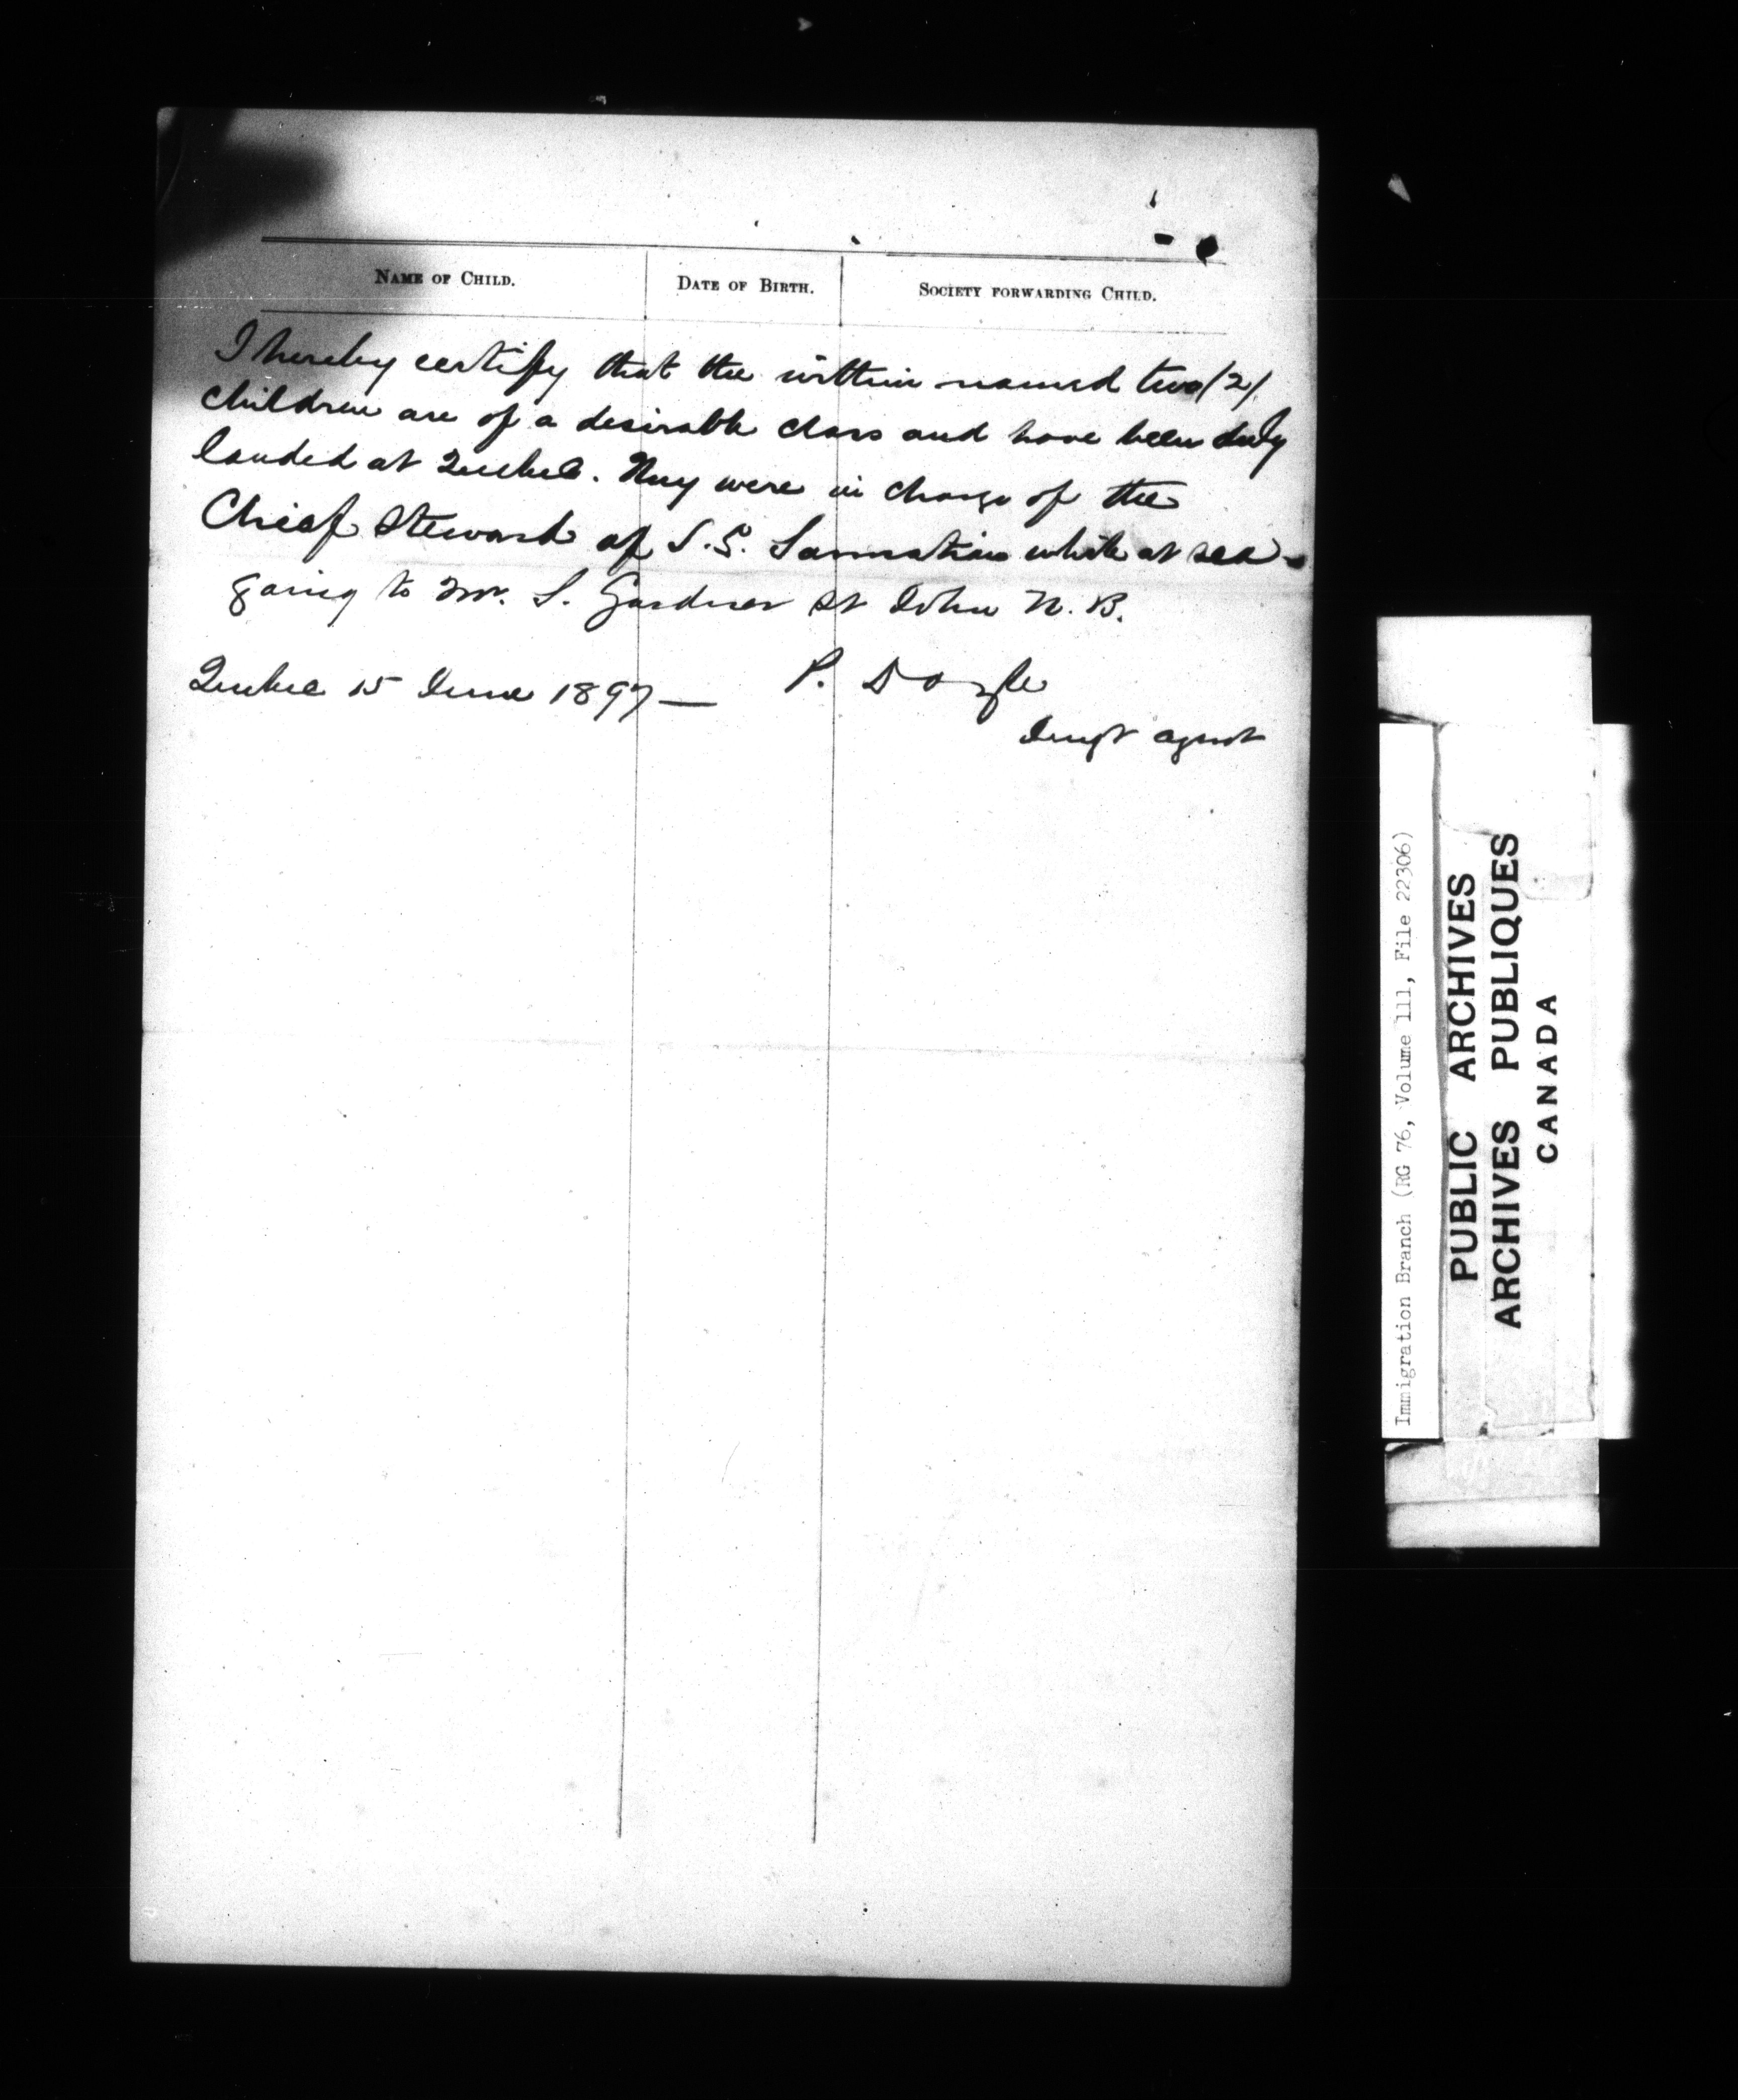 NAME OF CHILD. DATE OF BIRTH. SOCIETY FORWARDING CHILD.
I hereby certify that the within named two (2)
children are of a desirable class and have been duly
landed at Quebec. They were in charge of the
Chief Steward of S.S. Sarmatian while at sea -
going to Mr. S. Gardner St John N.B.
Quebec 15 June 1897 — P. Doyle
Immgt agent
Immigration Branch (RG 76, Volume 111, File 22306)
PUBLIC ARCHIVES
ARCHIVES PUBLIQUES
CANADA